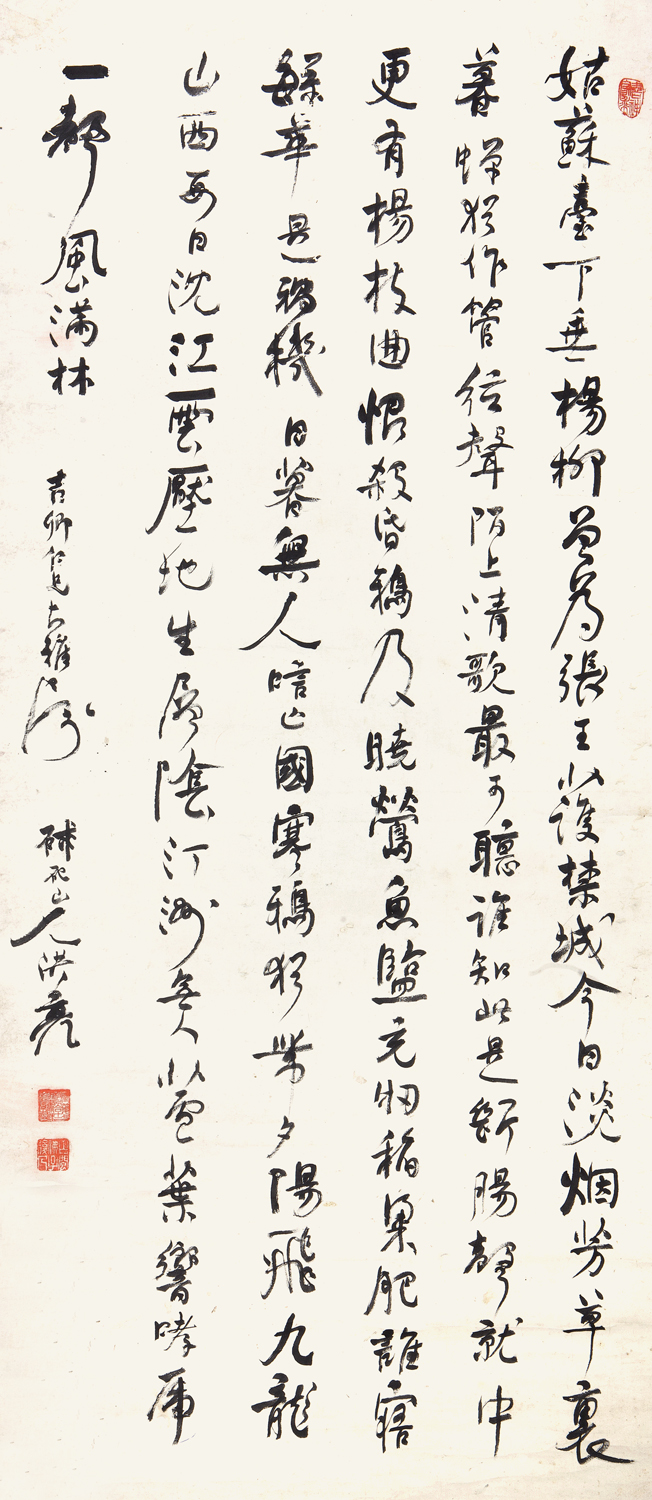 姑蘇臺下垂楊柳曾為張王護禁城今日淡烟芳草裏
暮蟬猶作管絃聲陌上清歌最可聽誰知此是斷腸聲就中
更有楊枝曲恨殺昏鴉及曉鶯魚鹽充牣稻粱肥誰寤
繁華是禍機日暮無人唁亡國寒鴉猶帶夕陽飛九龍
山西日沈江雲壓地生層陰汀洲無人葉響哮虎
一聲風滿林
吉卿大雅
池山人洪亮